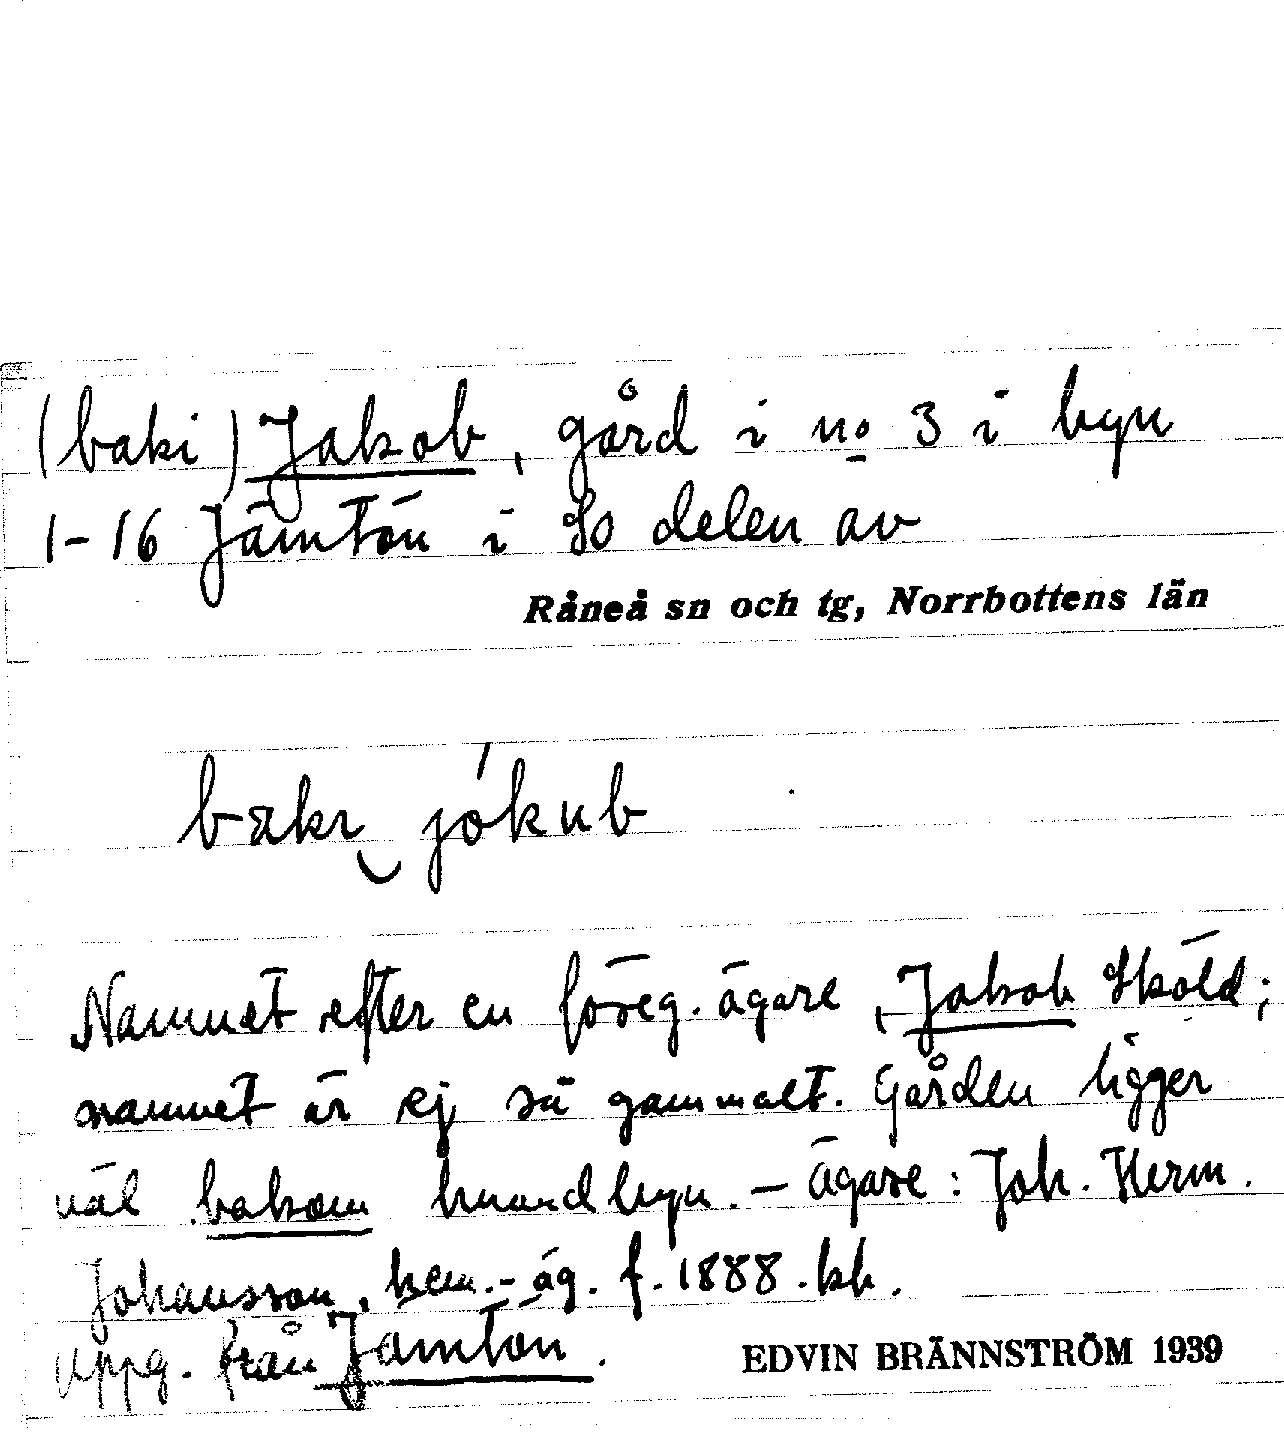 (baki) Jakob, gård i no 3 i byn
1-16 Jämtön i So delen av
Råneå sn och tg, Norrbottens län
bakı jókub
Namnet efter en föreg. ägare, Jakob Sköld;
namnet är ej så gammalt. Gården ligger
väl bakom huvudbyn. – Ägare: Joh. Herm.
Johansson, hem.-äg. f. 1888.
Uppg. från Jämtön.
EDVIN BRÄNNSTRÖM 1939